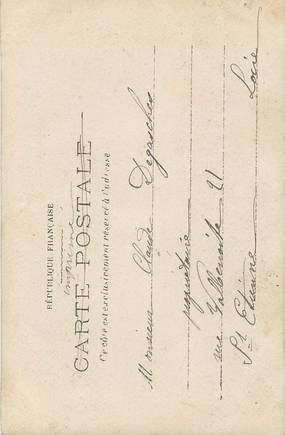 RÉPUBLIQUE FRANÇAISE
imprimé
CARTE POSTALE
Ce côté est exclusivement réservé à l'adresse
Monsieur Claude
propriétaire
rue 21
St Etienne Loire